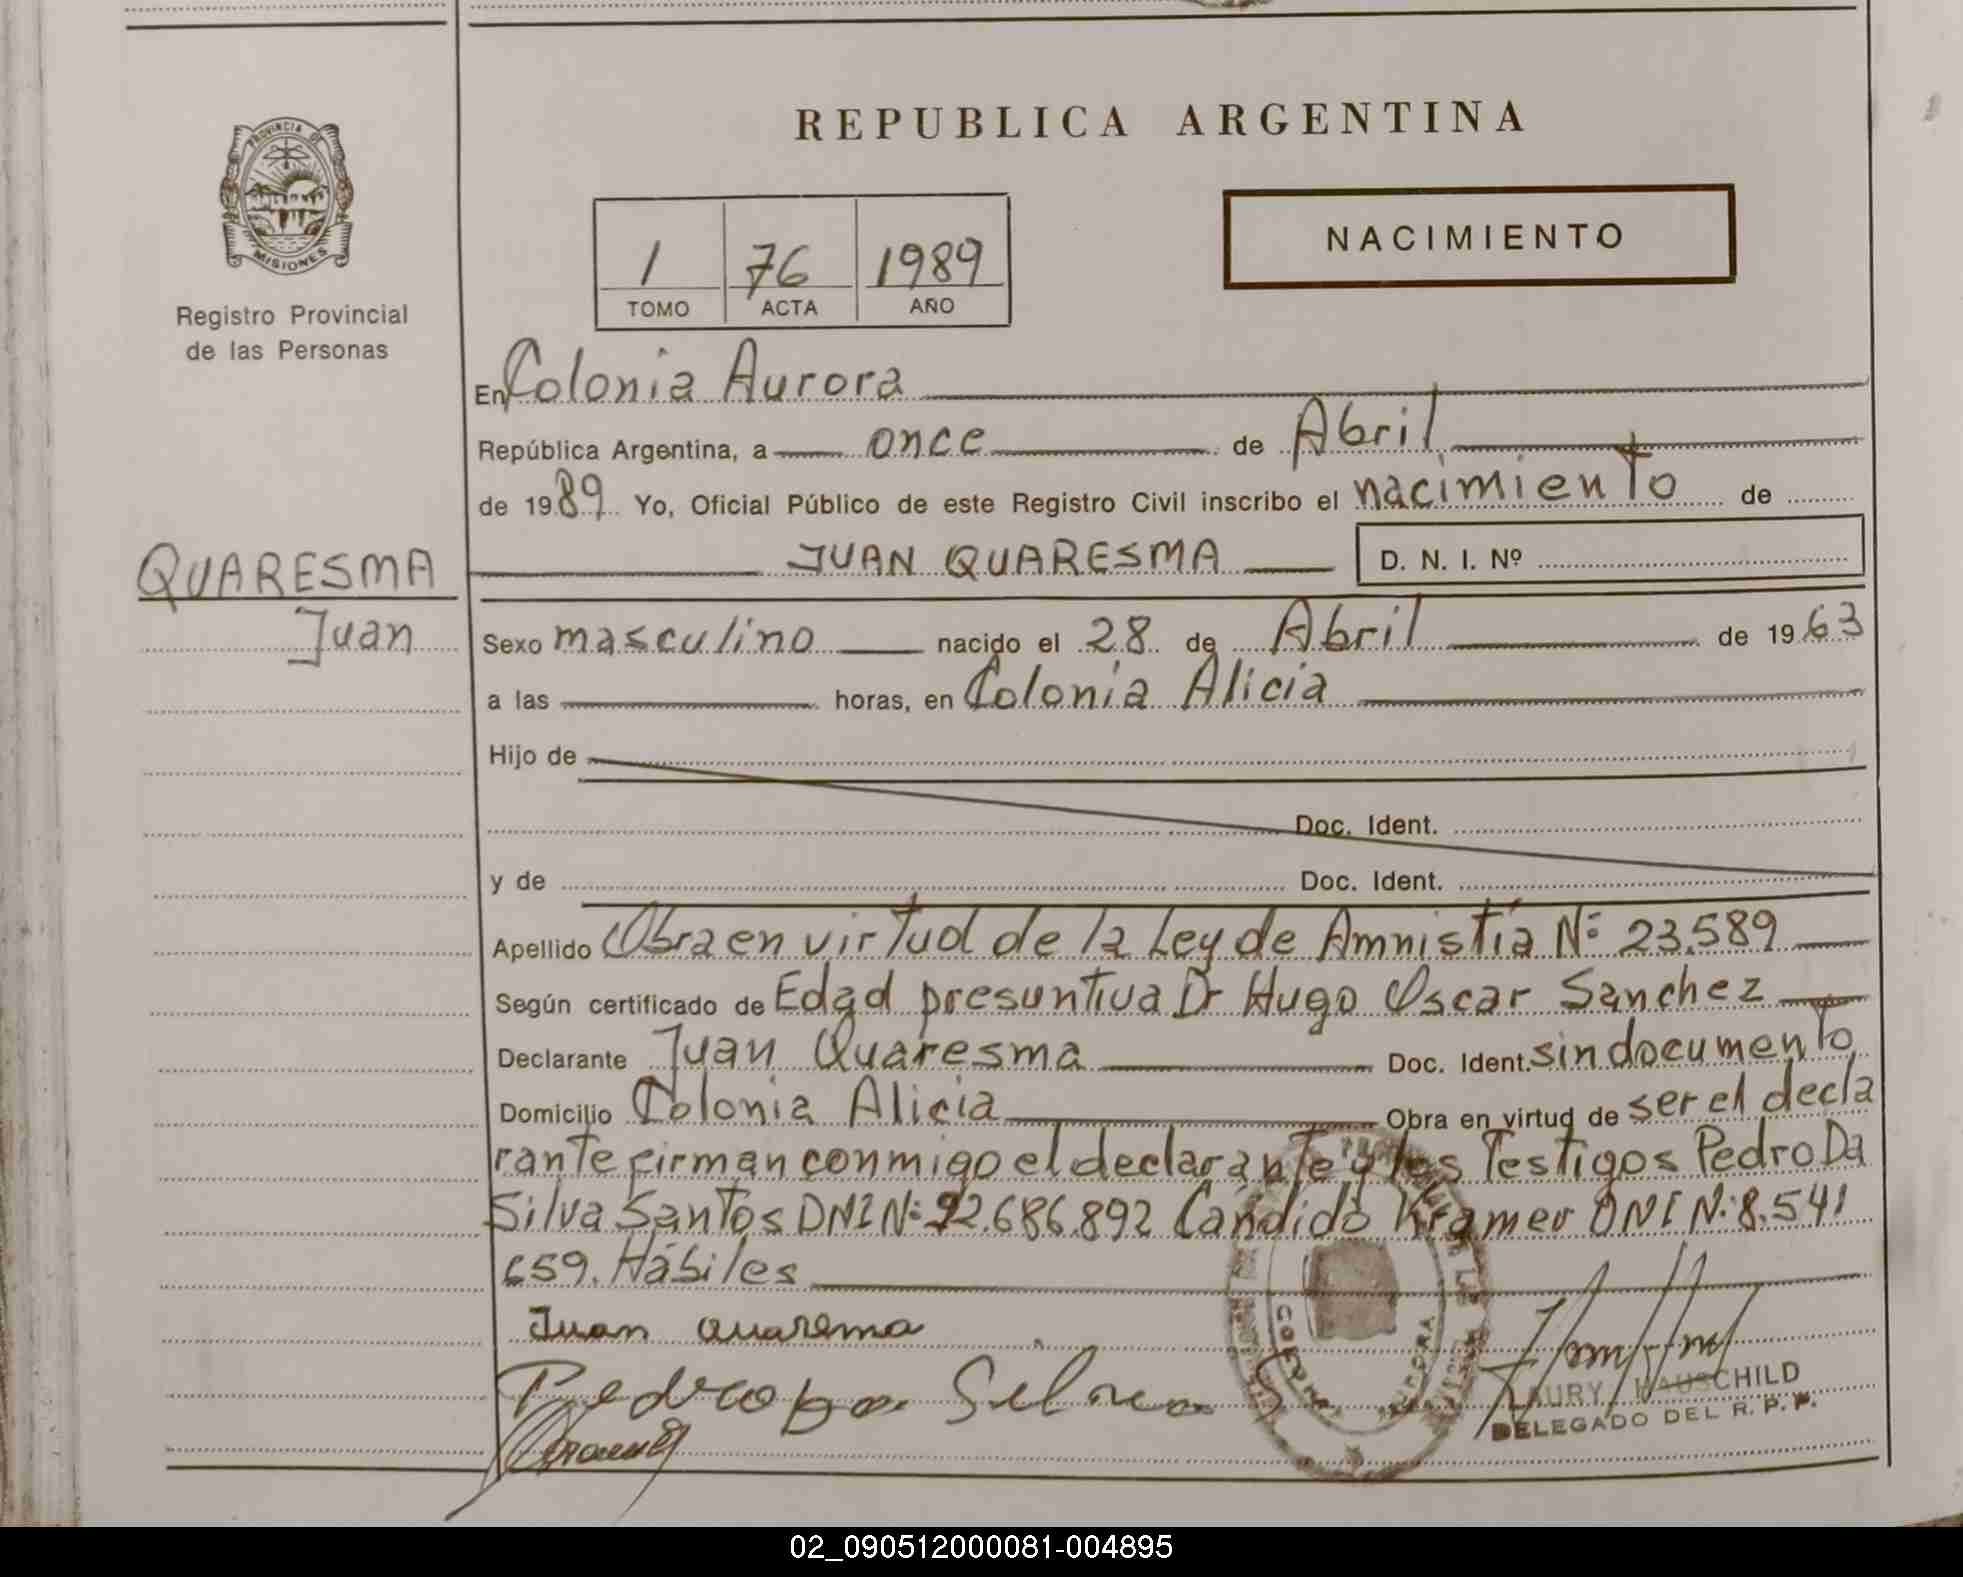 REPUBLICA ARGENTINA
PROVINCIA DE
MISIONES
Registro Provincial
de las Personas
1 76 1989
TOMO ACTA AÑO
NACIMIENTO
En Colonia Aurora
República Argentina, a once de Abril
de 1989 Yo, Oficial Público de este Registro Civil inscribo el nacimiento de
JUAN QUARESMA D. N. I. Nº
QUARESMA
Juan
Sexo masculino nacido el 28 de Abril de 1963
a las horas, en Colonia Alicia
Hijo de
Doc. Ident.
y de Doc. Ident.
Apellido Obra en virtud de la Ley de Amnistía Nº 23.589
Según certificado de Edad presuntiva Dr Hugo Oscar Sanchez
Declarante Juan Quaresma Doc. Ident. sin documento
Domicilio Colonia Alicia Obra en virtud de ser el decla
rante firman conmigo el declarante y los Testigos Pedro Da
Silva Santos DNI Nº 92.686.892 Cándido Kramer DNI Nº 8.541
659. Hábiles
Juan Quaresma
Pedro Da Silva S
COLONIA AURORA
LAURY HAUSCHILD
DELEGADO DEL R. P. P.
02_090512000081-004895